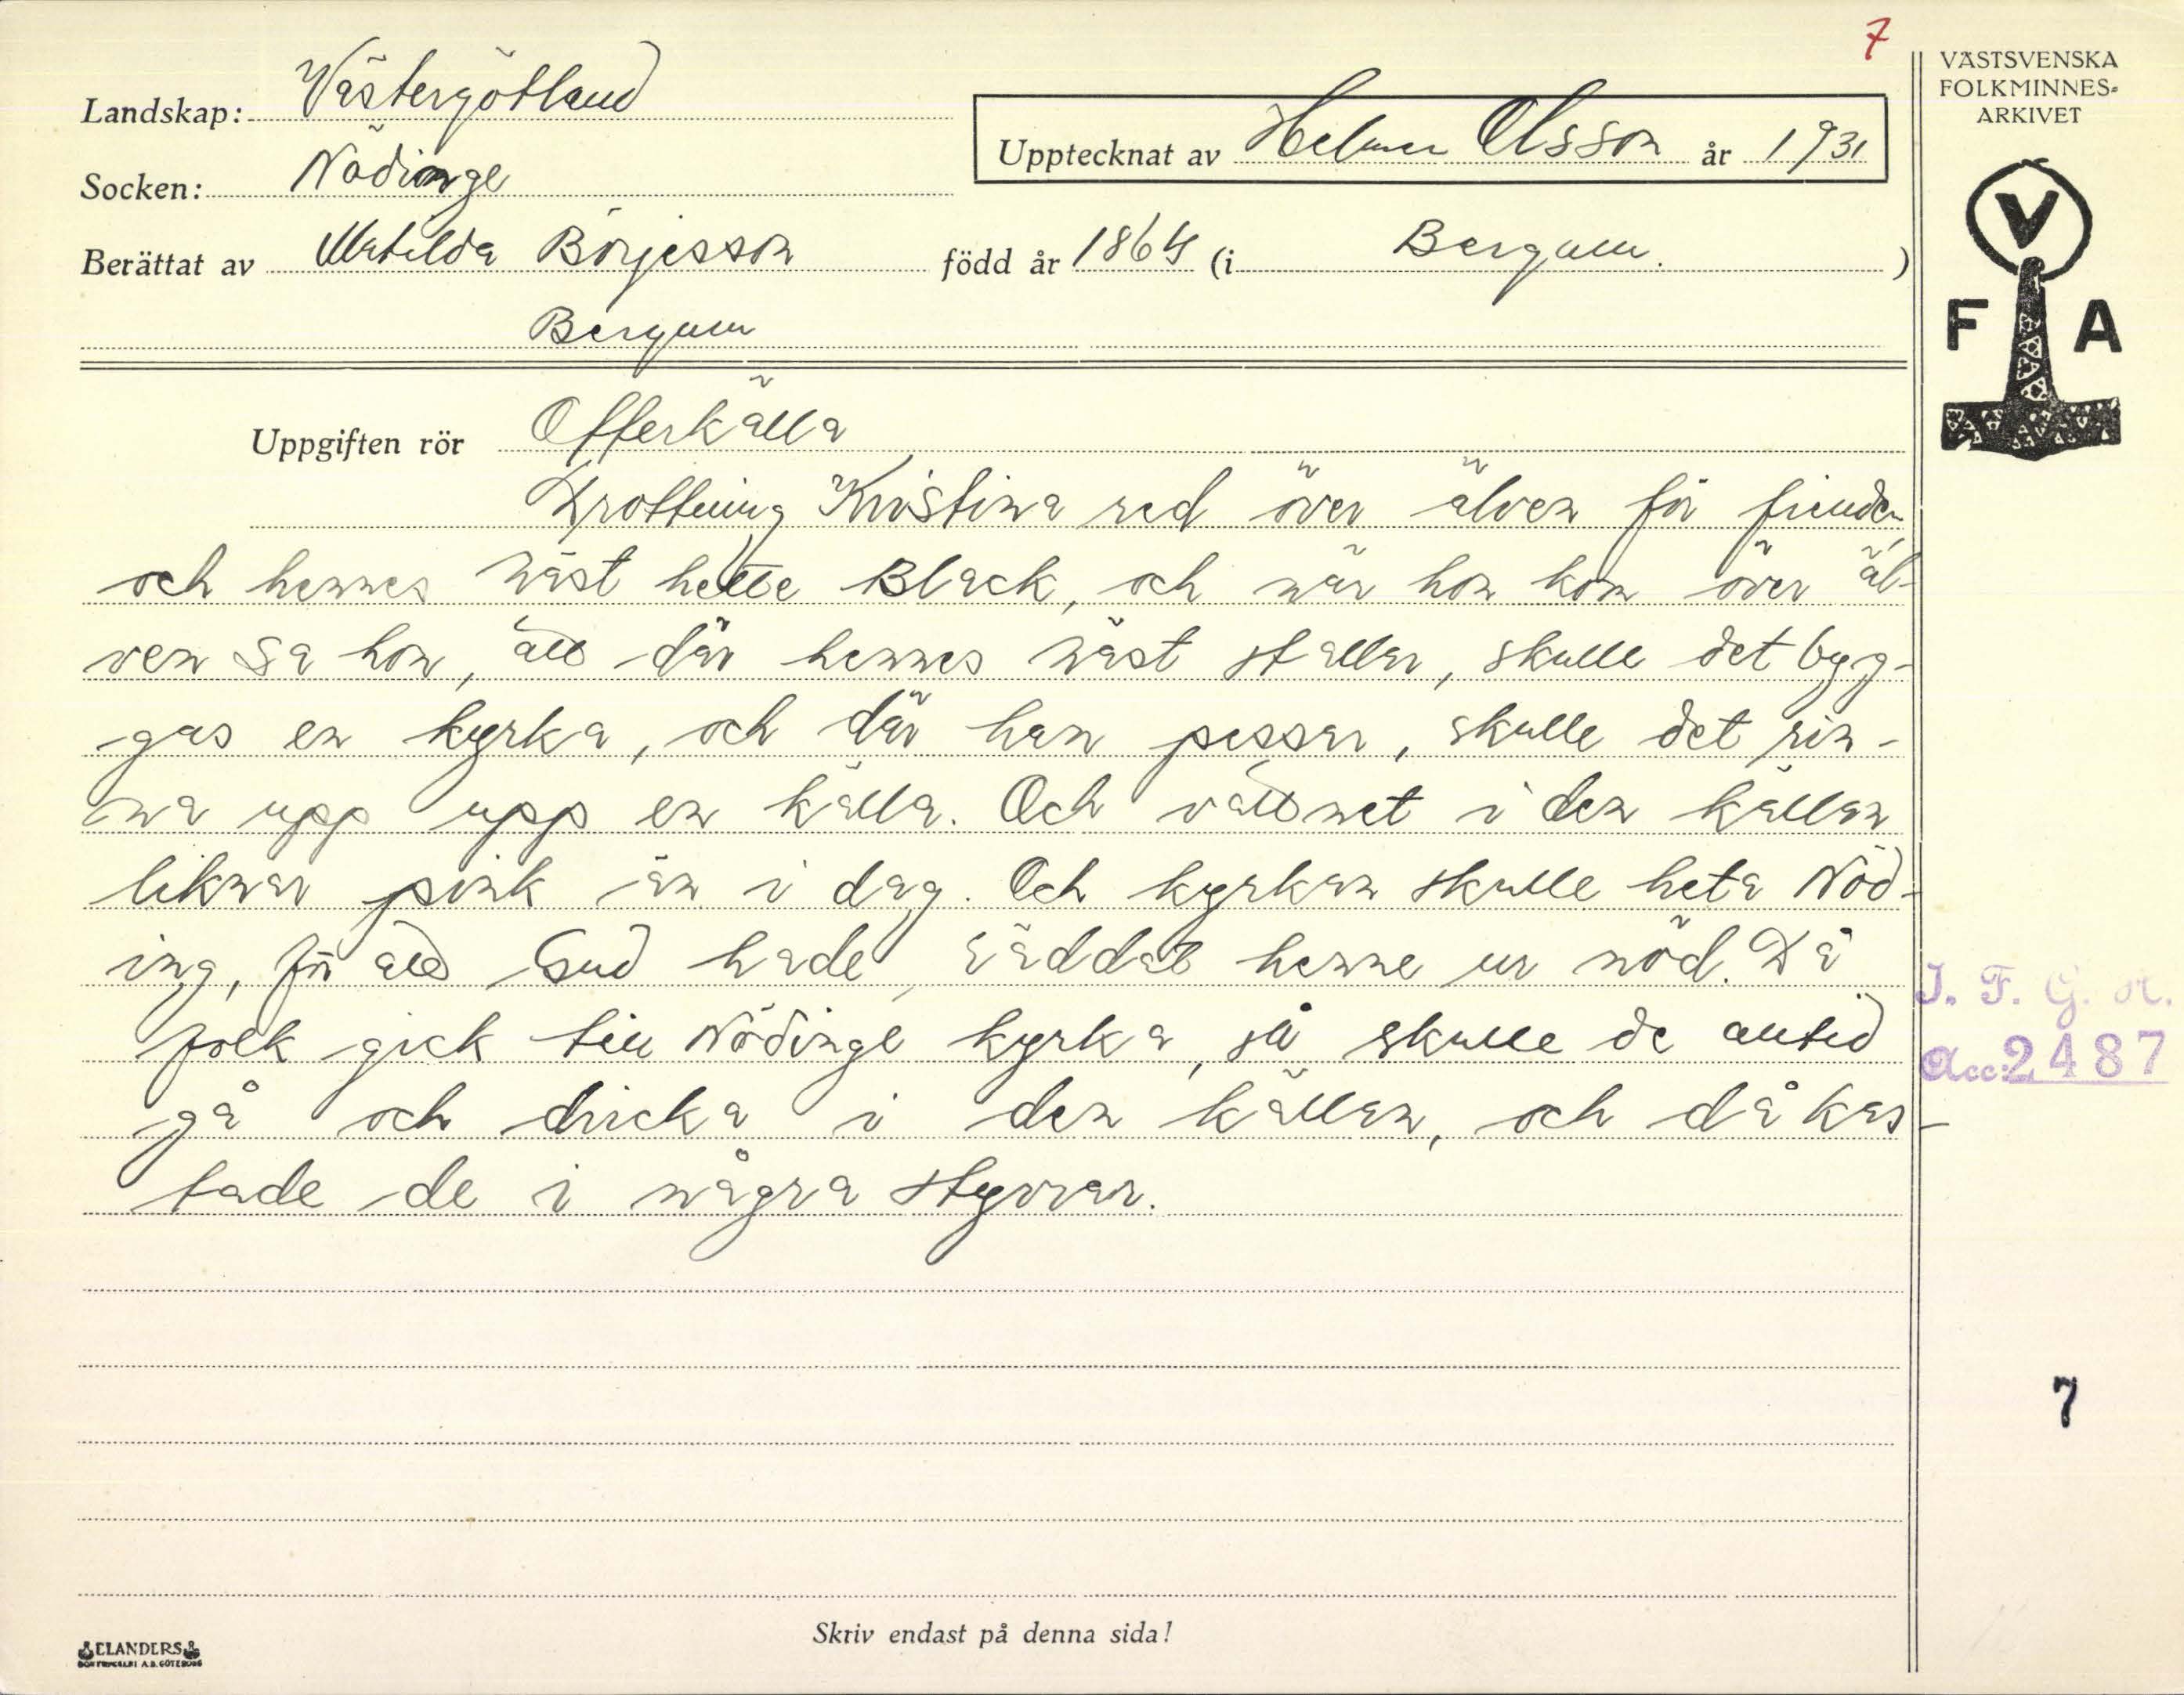 7
VÄSTSVENSKA
FOLKMINNES-
ARKIVET
Landskap: Västergötland
Upptecknat av Helmer Olsson år 1931
Socken: Nödinge
Berättat av Matilda Börjesson född år 1864 (i Bergum.)
Bergum
V
F A
Uppgiften rör Offerkälla
Drottning Kristina red över älven för fienden,
och hennes häst hette Black, och när hon kom över äl-
ven sa hon, att där hennes häst stallar, skulle det byg-
gas en kyrka, och där han pissar, skulle det rin-
na upp upp en källa. Och vattnet i den källan
liknar pink än i dag. Och kyrkan skulle heta Nöd-
ing, för att Gud hade räddat henne ur nöd. Då
folk gick till Nödinge kyrka, så skulle de alltid
gå och dricka i den källan, och då kas-
tade de i några styvrar.
I. F. G. H.
Acc: 2487
7
Skriv endast på denna sida!
ELANDERS
BOKTRYCKERI A.B. GÖTEBORG